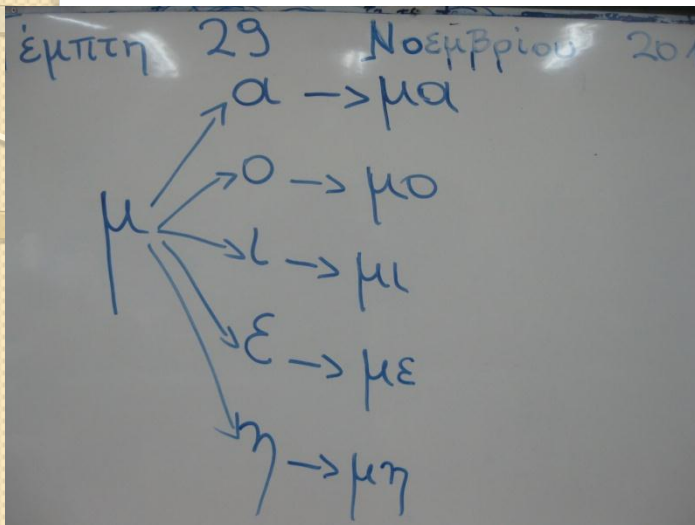 έμπτη 29 Νοεμβρίου 20
α → μα
ο → μο
μ
ι → μι
ε → με
η → μη